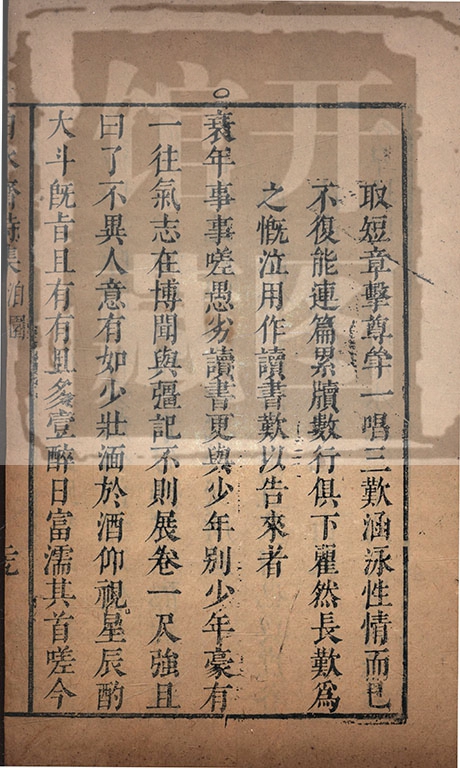 取短章擊尊牟一唱三歎涵泳性情而已
不復能連篇累牘數行俱下瞿然長歎為
之慨泣用作讀書歎以告來者
衰年事事嗟愚劣讀書更與少年別少年豪有
一往氣志在博聞與彊記不則展卷一尺強且
曰了不異人意有如少壯湎於酒仰視星辰酌
大斗旣旨且有有且多壹醉日富濡其首嗟今